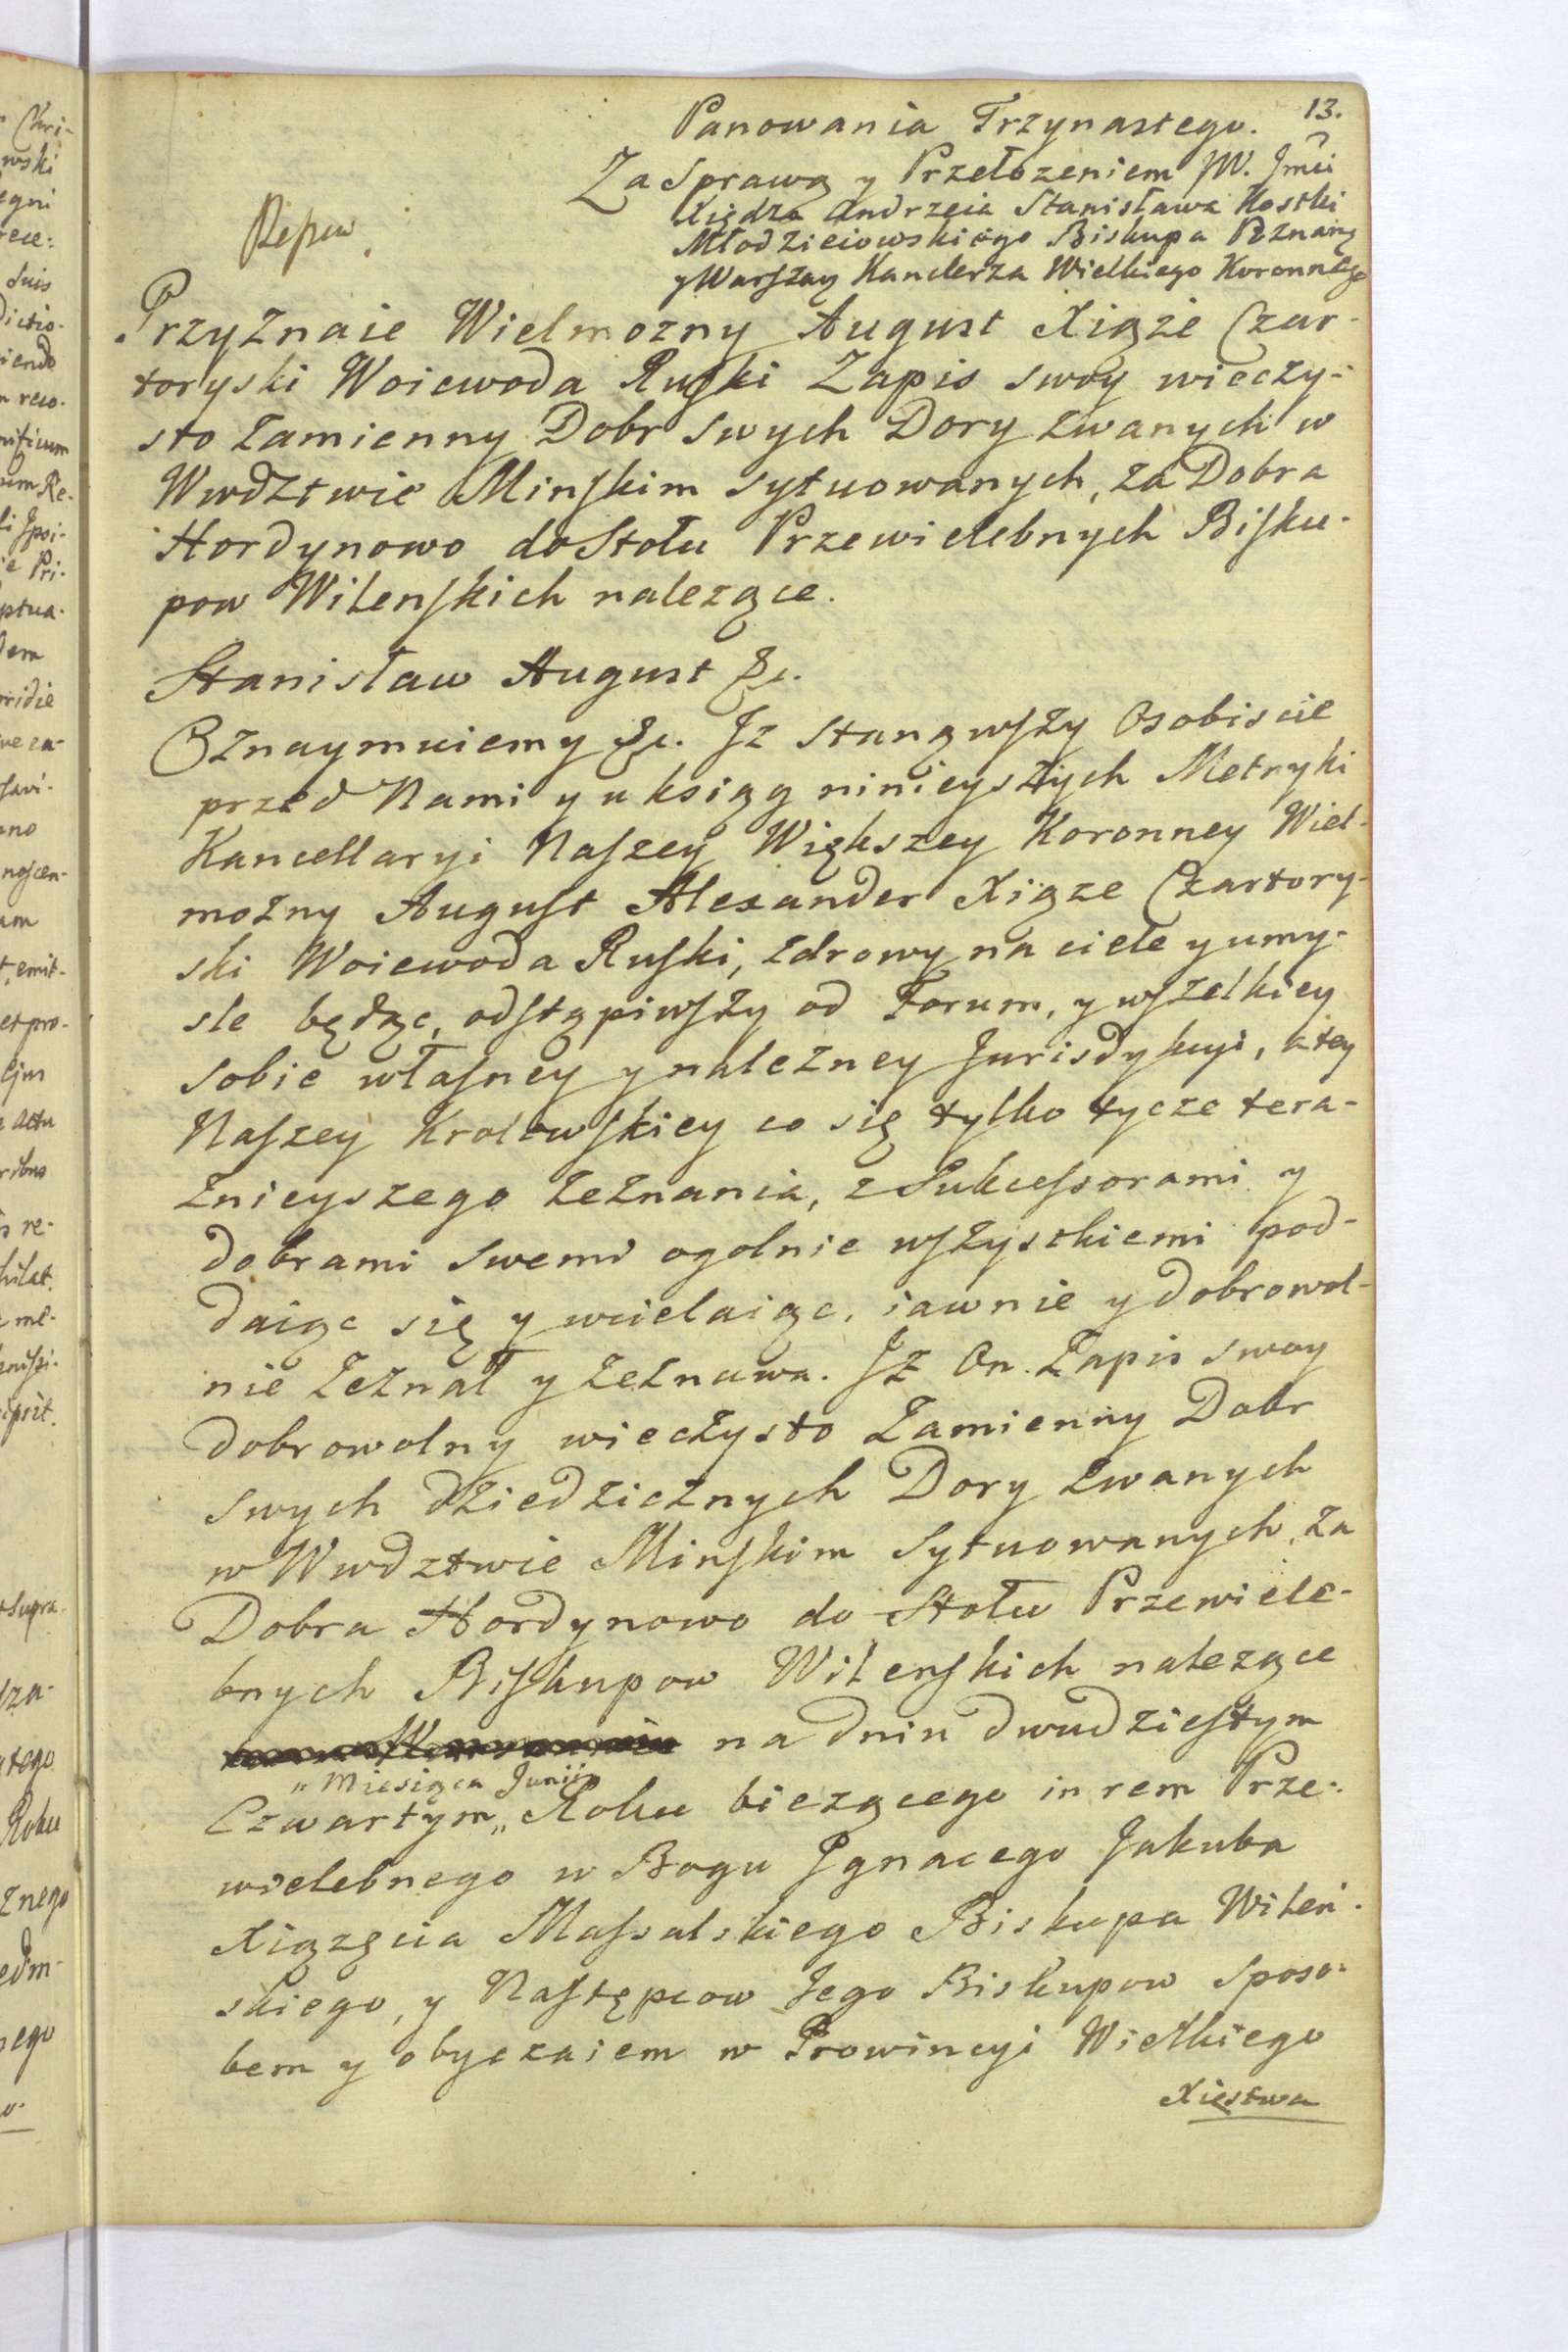 13.
Panowania Trzynastego.
Za Sprawą y Przełozeniem JW. Jmci
Xiędza Andrzeia Stanisława Kostki
Młodzieiowskiego Biskupa Poznang
y Warszag Kanclerza Wielkiego Koronnego
Przyznaie Wielmozny August Xiąże Czar-
toryski Woiewoda Ruski Zapis swoy wieczy-
sto zamienny Dobr swych Dory zwanych w
Wwdztwie Minskim sytuowanych, za Dobra
Hordynowo do Stołu Przewielebnych Bisku-
pow Wilenskich nalezące.
Stanisław August &c.
Oznaymuiemy &c. Jz stanąwszy osobiscie
przed Nami y u ksiąg ninieyszych Metryki
Kancellaryi Naszey Większey Koronney Wiel-
możny August Alexander Xiąze Czartory-
ski Woiewoda Ruski, zdrowy na ciele y umy-
sle będąc, odstąpiwszy od Forum, y wszelkiey
sobie własney y należney Jurisdykcyi, a tey
Naszey Krolewskiey co się tylko tycze tera-
znieyszego zeznania, z Sukcessorami y
dobrami swemi ogolnie wszystkiemi pod-
daiąc się y wcielaiąc, iawnie y dobrowol-
nie zeznał y zeznawa. Jż On Zapis swoy
dobrowolny wieczysto zamienny Dobr
swych dziedzicznych Dory zwanych
w Wwdztwie Minskim sytuowanych, za
Dobra Hordynowo do Stołu Przewiele-
bnych Biskupow Wilenskich nalezące
na dniu dwudziestym
„Miesiąca Junii„
Czwartym „ Roku biezącego in rem Prze-
wielebnego w Bogu Jgnacego Jakuba
Xiążęcia Massalskiego Biskupa Wileń-
skiego, y Następcow Jego Biskupow sposo-
bem y obyczaiem w Prowincyi Wielkiego
Xięstwa